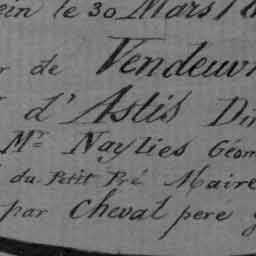 ein le 30 Mars 1
r de Vendeuv
d'Astis Di
Mr Naylies Géom
du Petit Pré Maire
par Cheval pere g